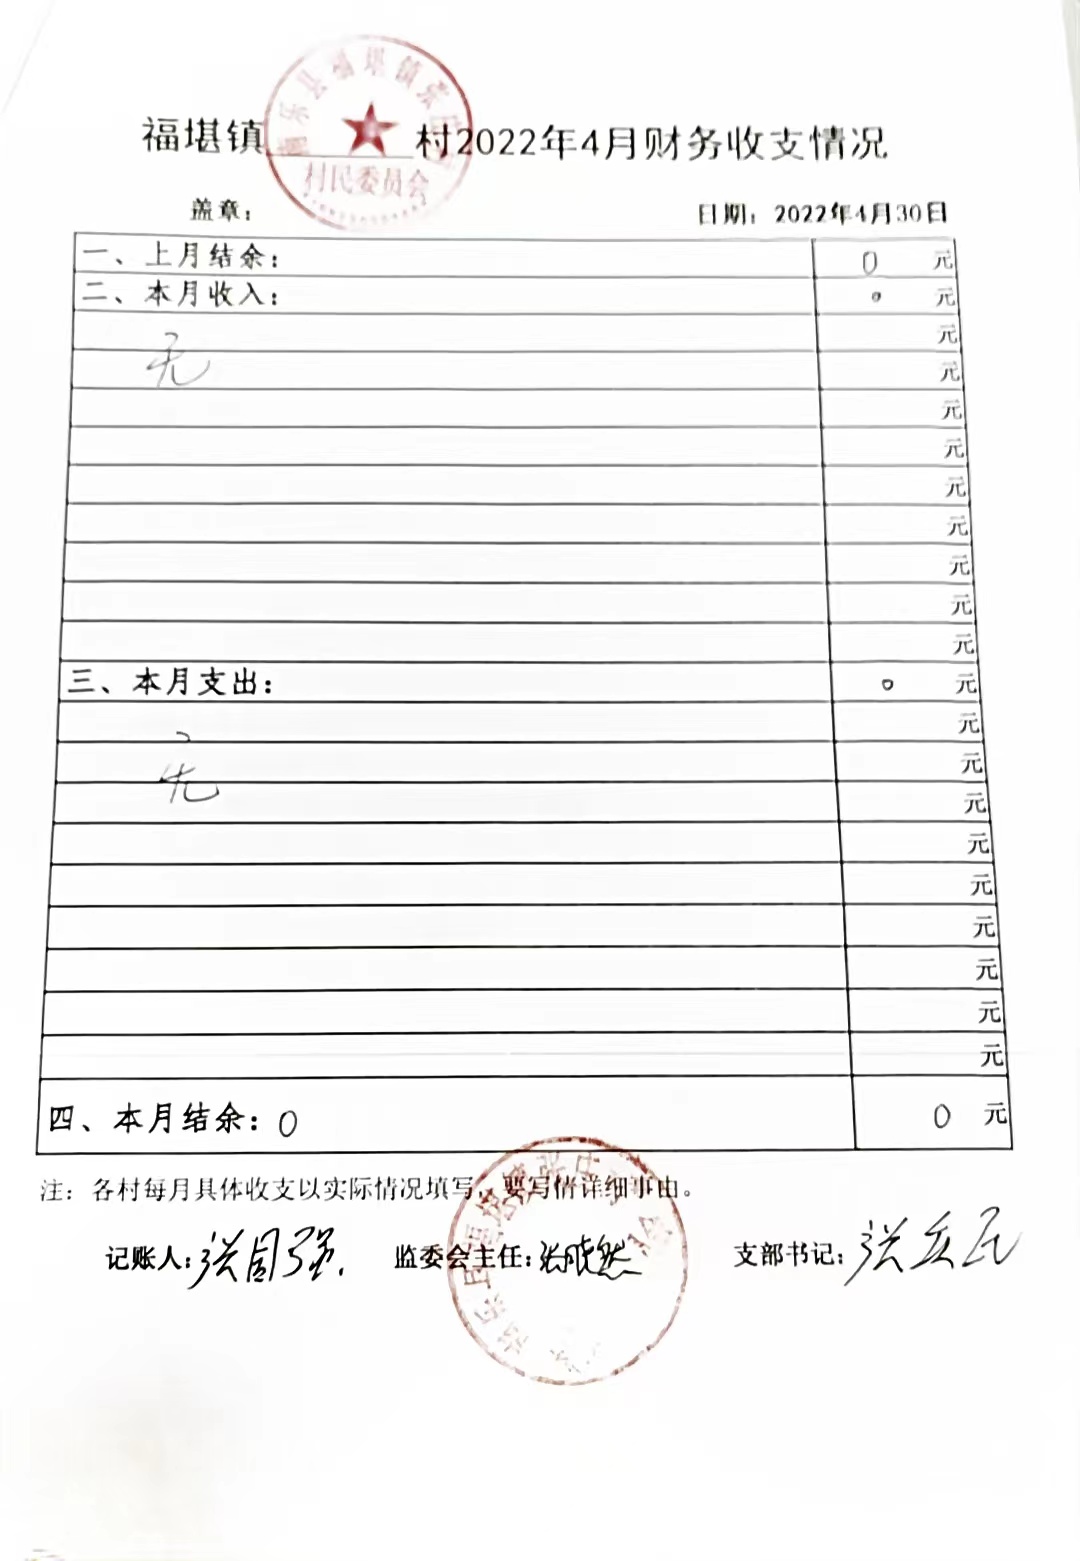 福堪镇 村2022年4月财务收支情况
村民委员会
盖章： 日期：2022年4月30日
一、上月结余： 0 元
二、本月收入： 0 元
元
无 元
元
元
元
元
元
元
元
三、本月支出： 0 元
元
无 元
元
元
元
元
元
元
元
四、本月结余：0 0 元
注：各村每月具体收支以实际情况填写，要写情详细事由。
记账人：张国强. 监委会主任：张晓然 支部书记：张庆民